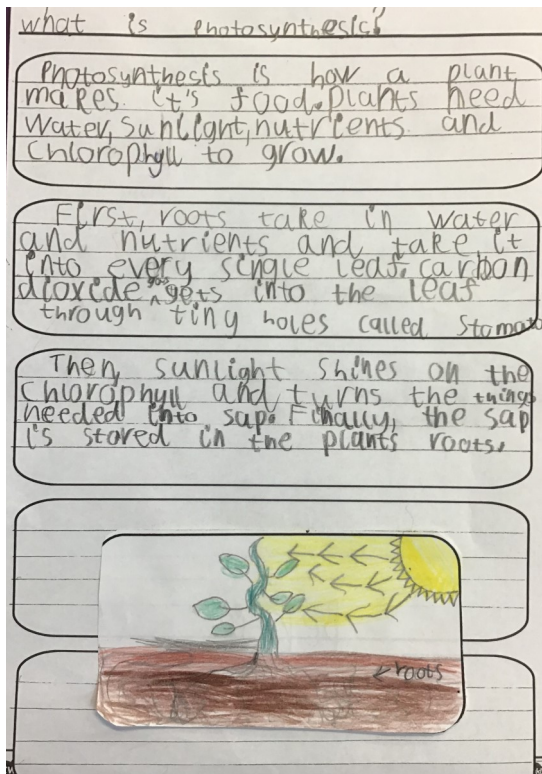 what is photosynthesis?
Photosynthesis is how a plant
makes it's food. Plants need
water, sunlight, nutrients and
chlorophyll to grow.
First, roots take in water
and nutrients and take it
into every single leaf. carbon
dioxide gas gets into the leaf
through tiny holes called stomata
Then, sunlight shines on the
chlorophyll and turns the things
needed into sap. Finally, the sap
is stored in the plants roots.
roots